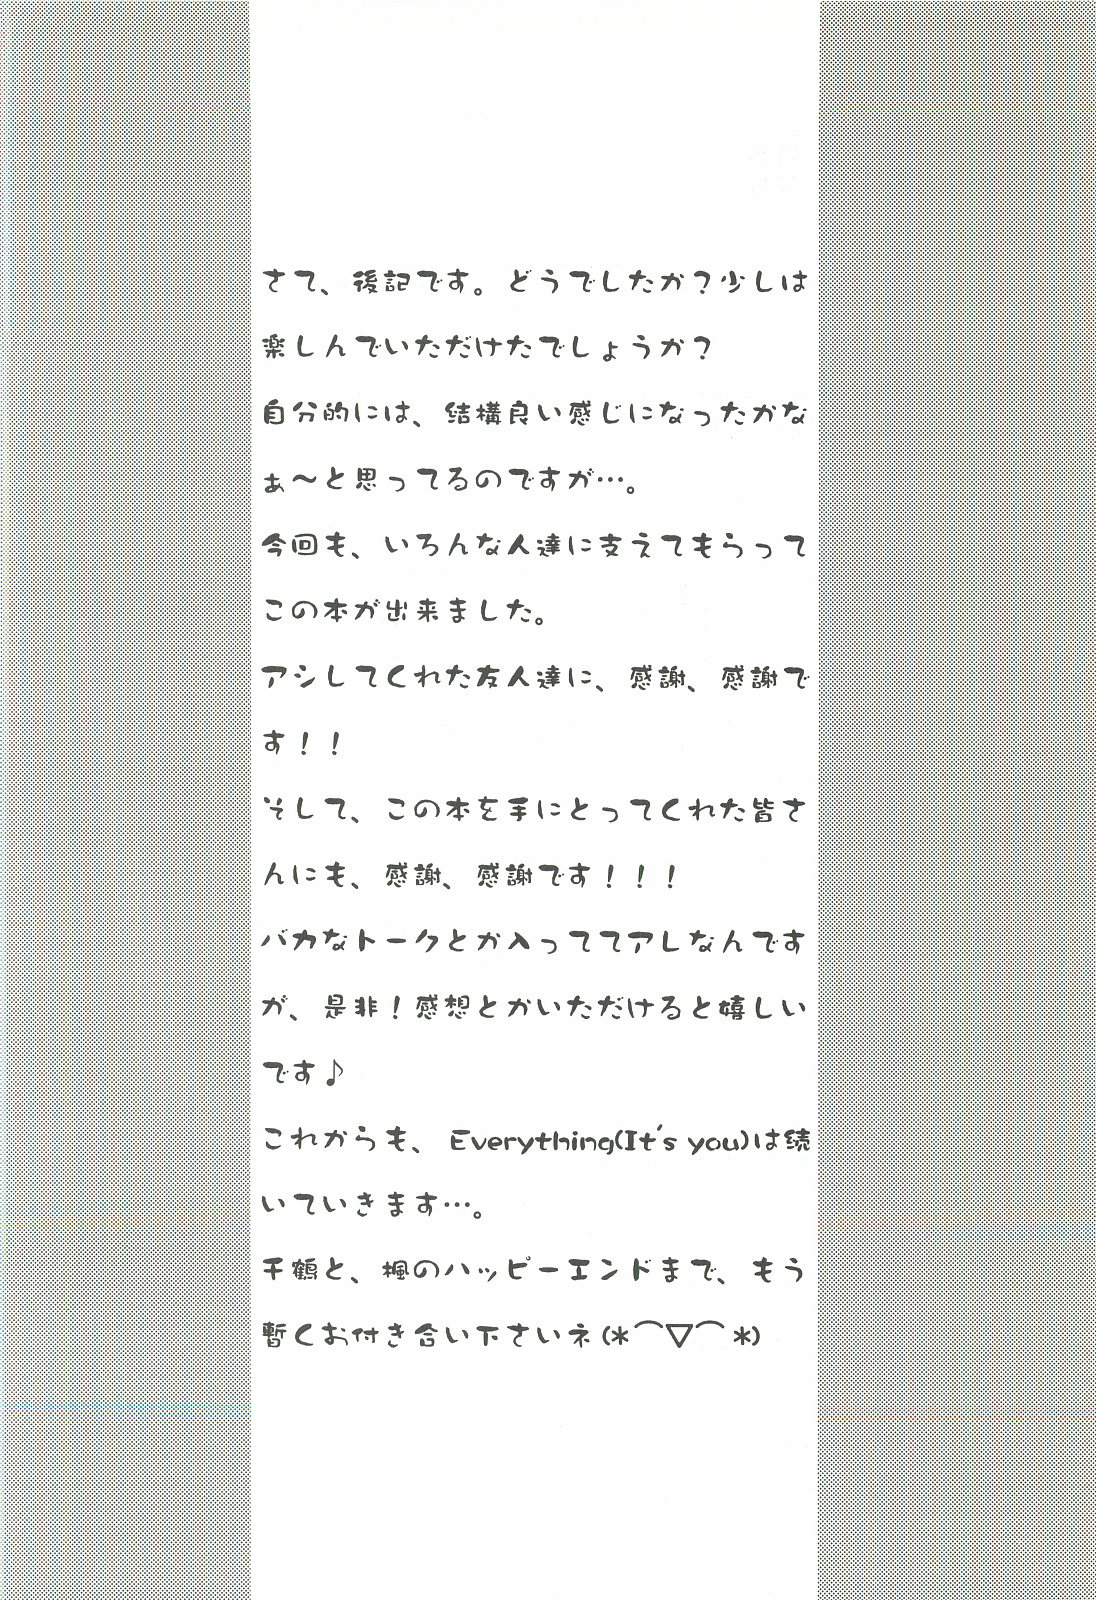 さて、後記です。どうでしたか？少しは
楽しんでいただけたでしょうか？
自分的には、結構良い感じになったかな
ぁ～と思ってるのですが…。
今回も、いろんな人達に支えてもらって
この本が出来ました。
アシしてくれた友人達に、感謝、感謝で
す！！
そして、この本を手にとってくれた皆さ
んにも、感謝、感謝です！！！
バカなトークとか入っててアレなんです
が、是非！感想とかいただけると嬉しい
です♪
これからも、Everything(It's you)は続
いていきます…。
千鶴と、楓のハッピーエンドまで、もう
暫くお付き合い下さいネ(*⌒▽⌒*)